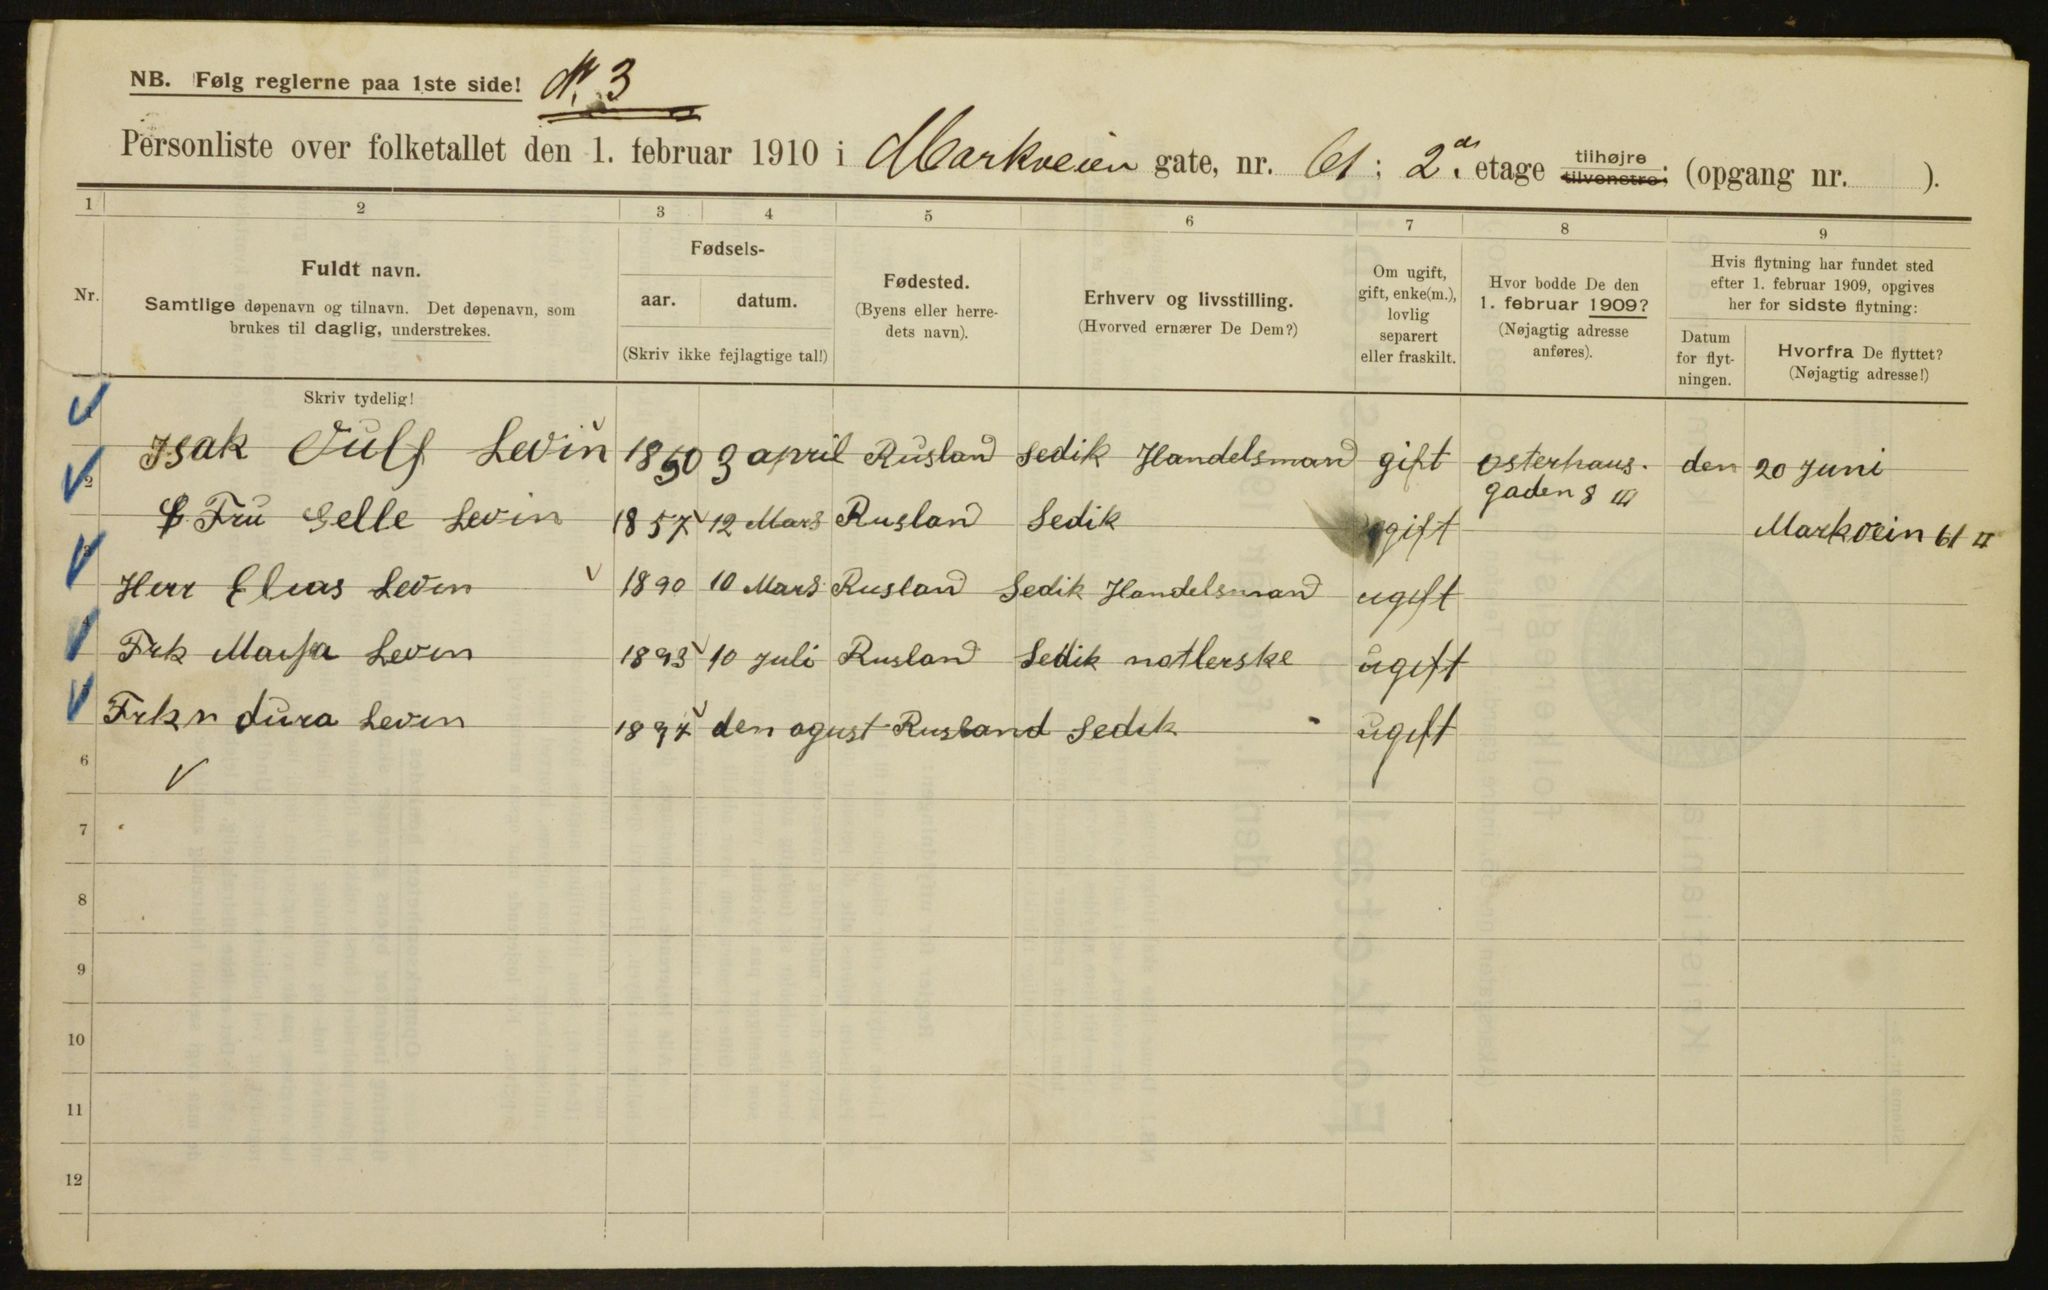 NB. Følg reglerne paa 1ste side! N. 3
Personliste over folketallet den 1. februar 1910 i Markveien gate, nr. 61 ; 2de etage tilhøjre tilvenstre; (opgang nr. ).
1 2 3 4 5 6 7 8 9
Nr.
Fuldt navn.
Samtlige døpenavn og tilnavn. Det døpenavn, som
brukes til daglig, understrekes.
Fødsels-
aar. datum.
(Skriv ikke fejlagtige tal!)
Fødested.
(Byens eller herre-
dets navn).
Erhverv og livsstilling.
(Hvorved ernærer De Dem?)
Om ugift,
gift, enke(m.),
lovlig
separert
eller fraskilt.
Hvor bodde De den
1. februar 1909?
(Nøjagtig adresse
anføres).
Hvis flytning har fundet sted
efter 1. februar 1909, opgives
her for sidste flytning:
Datum
for flyt-
ningen.
Hvorfra De flyttet?
(Nøjagtig adresse!)
Skriv tydelig!
Isak Vulf Levin 1850 3 april Rusland Sedik Handelsmand gift Osterhaus. den 20 Juni
gaden 8 III
2 Fru Gelle Levin 1857 12 Mars Rusland Sedik gift Markvein 61 II
3 Herr Elias Levin 1890 10 Mars Rusland Sedik Handelsmand ugift
4 Frk Levin 1893 10 Juli Rusland Sedik natlerske ugift
Frkn dura Levin 1894 den ogust Rusland Sedik ugift
6
7
8
9
10
11
12